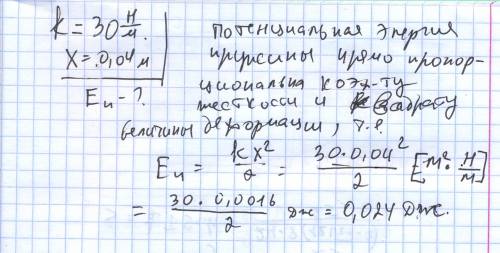 k = 30 Н/м.
X = 0,04 м
Eп - ?
потенциальная энергия
пружины прямо пропор-
циональна коэф-ту
жесткости и квадрату
величины деформации, т.е.
Eп = kx²/2 = 30·0,04²/2 [м²·Н/м]
= 30·0,0016/2 Дж = 0,024 Дж.